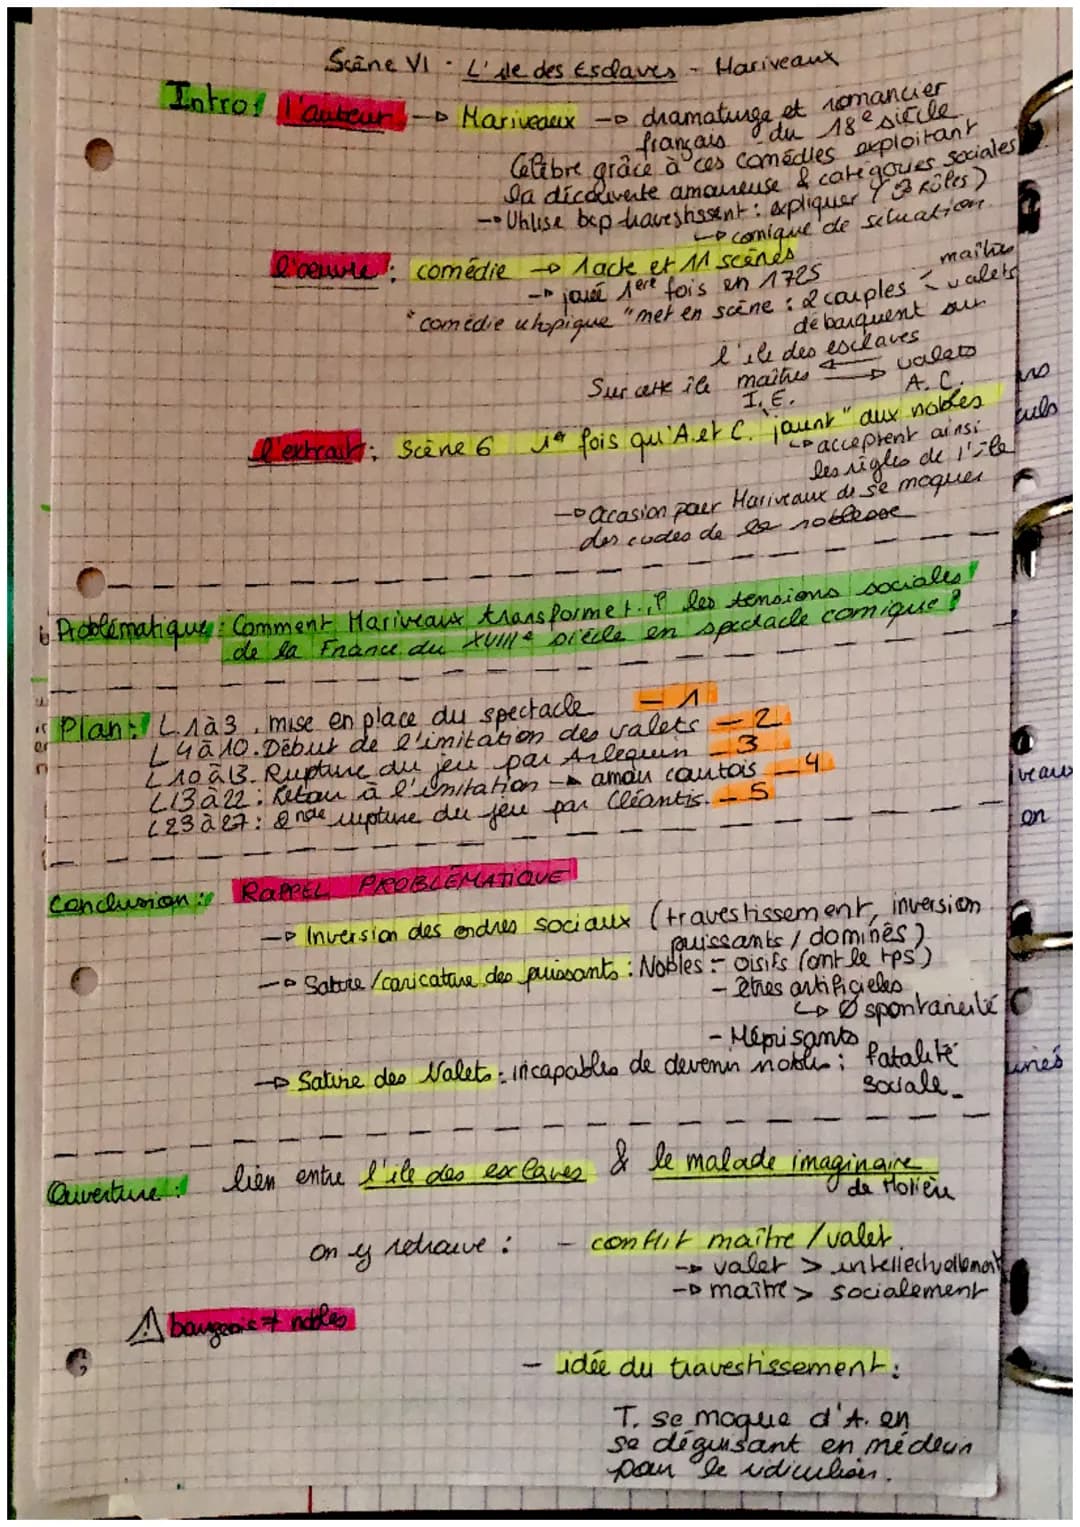 Scène VI - L'île des Esclaves - Marivaux
Intro : l'auteur → Marivaux → dramaturge et romancier
français du 18e siècle
Célèbre grâce à ces comédies exploitant
la découverte amoureuse & catégories sociales
→ Utilise bcp travestissent : expliquer (3 rôles)
↳ comique de situation
l'oeuvre : comédie → 1 acte et 11 scènes
→ joué 1ère fois en 1725
"comédie utopique" met en scène : 2 couples < maîtres
valets
débarquent sur
l'île des esclaves
Sur cette île maîtres ⇄ valets
I. E. A. C.
l'extrait : Scène 6 1e fois qu'A. et C. "jouent" aux nobles
↳ acceptent ainsi
les règles de l'île
→ Ocasion pour Marivaux de se moquer
des codes de la noblesse
Problématique : Comment Marivaux transforme t-il les tensions sociales
de la France du XVIIIe siècle en spectacle comique ?
Plan : L 1 à 3 . mise en place du spectacle - 1
L 4 à 10. Début de l'imitation des valets - 2
L 10 à 13. Rupture du jeu par Arlequin - 3
L 13 à 22 : Retour à l'imitation → amour courtois - 4
L 23 à 27 : 2nde rupture du jeu par Cléantis. - 5
Conclusion : RAPPEL PROBLÉMATIQUE
→ Inversion des ordres sociaux (travestissement, inversion
puissants / dominés)
→ Satire / caricature des puissants : Nobles : - oisifs (ont le tps)
- êtres artificieles
↳ Ø spontanéité
- Méprisants
→ Satire des Valets : incapables de devenir nobles : fatalité
sociale
Ouverture : lien entre l'île des esclaves & le malade imaginaire
de Molière
on y retrouve : - conflit maître / valet.
→ valet > intellectuellement
→ maître > socialement
⚠ bourgeois ≠ nobles
- idée du travestissement :
T. se moque d'A. en
se déguisant en médecin
pour le ridiculiser.